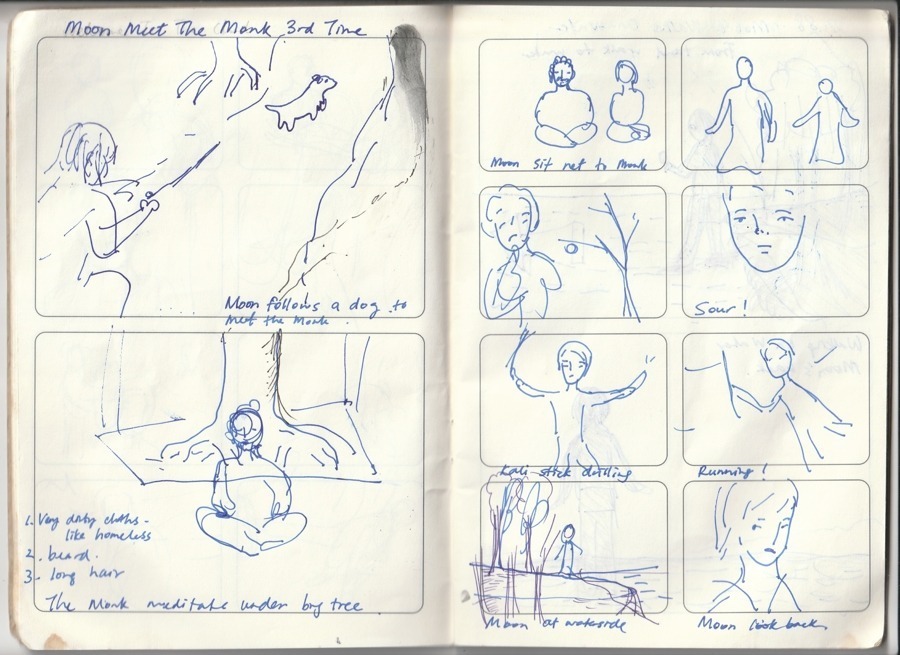 Moon Meet The Monk 3rd Time
Moon follows a dog to
meet the Monk.
1. Very dirty cloths -
like homeless
2. beard.
3. long hair
The Monk meditate under big tree.
Moon sit net to Monk
Sour!
Kali stick drilling
Running!
Moon at waterside
Moon look back.